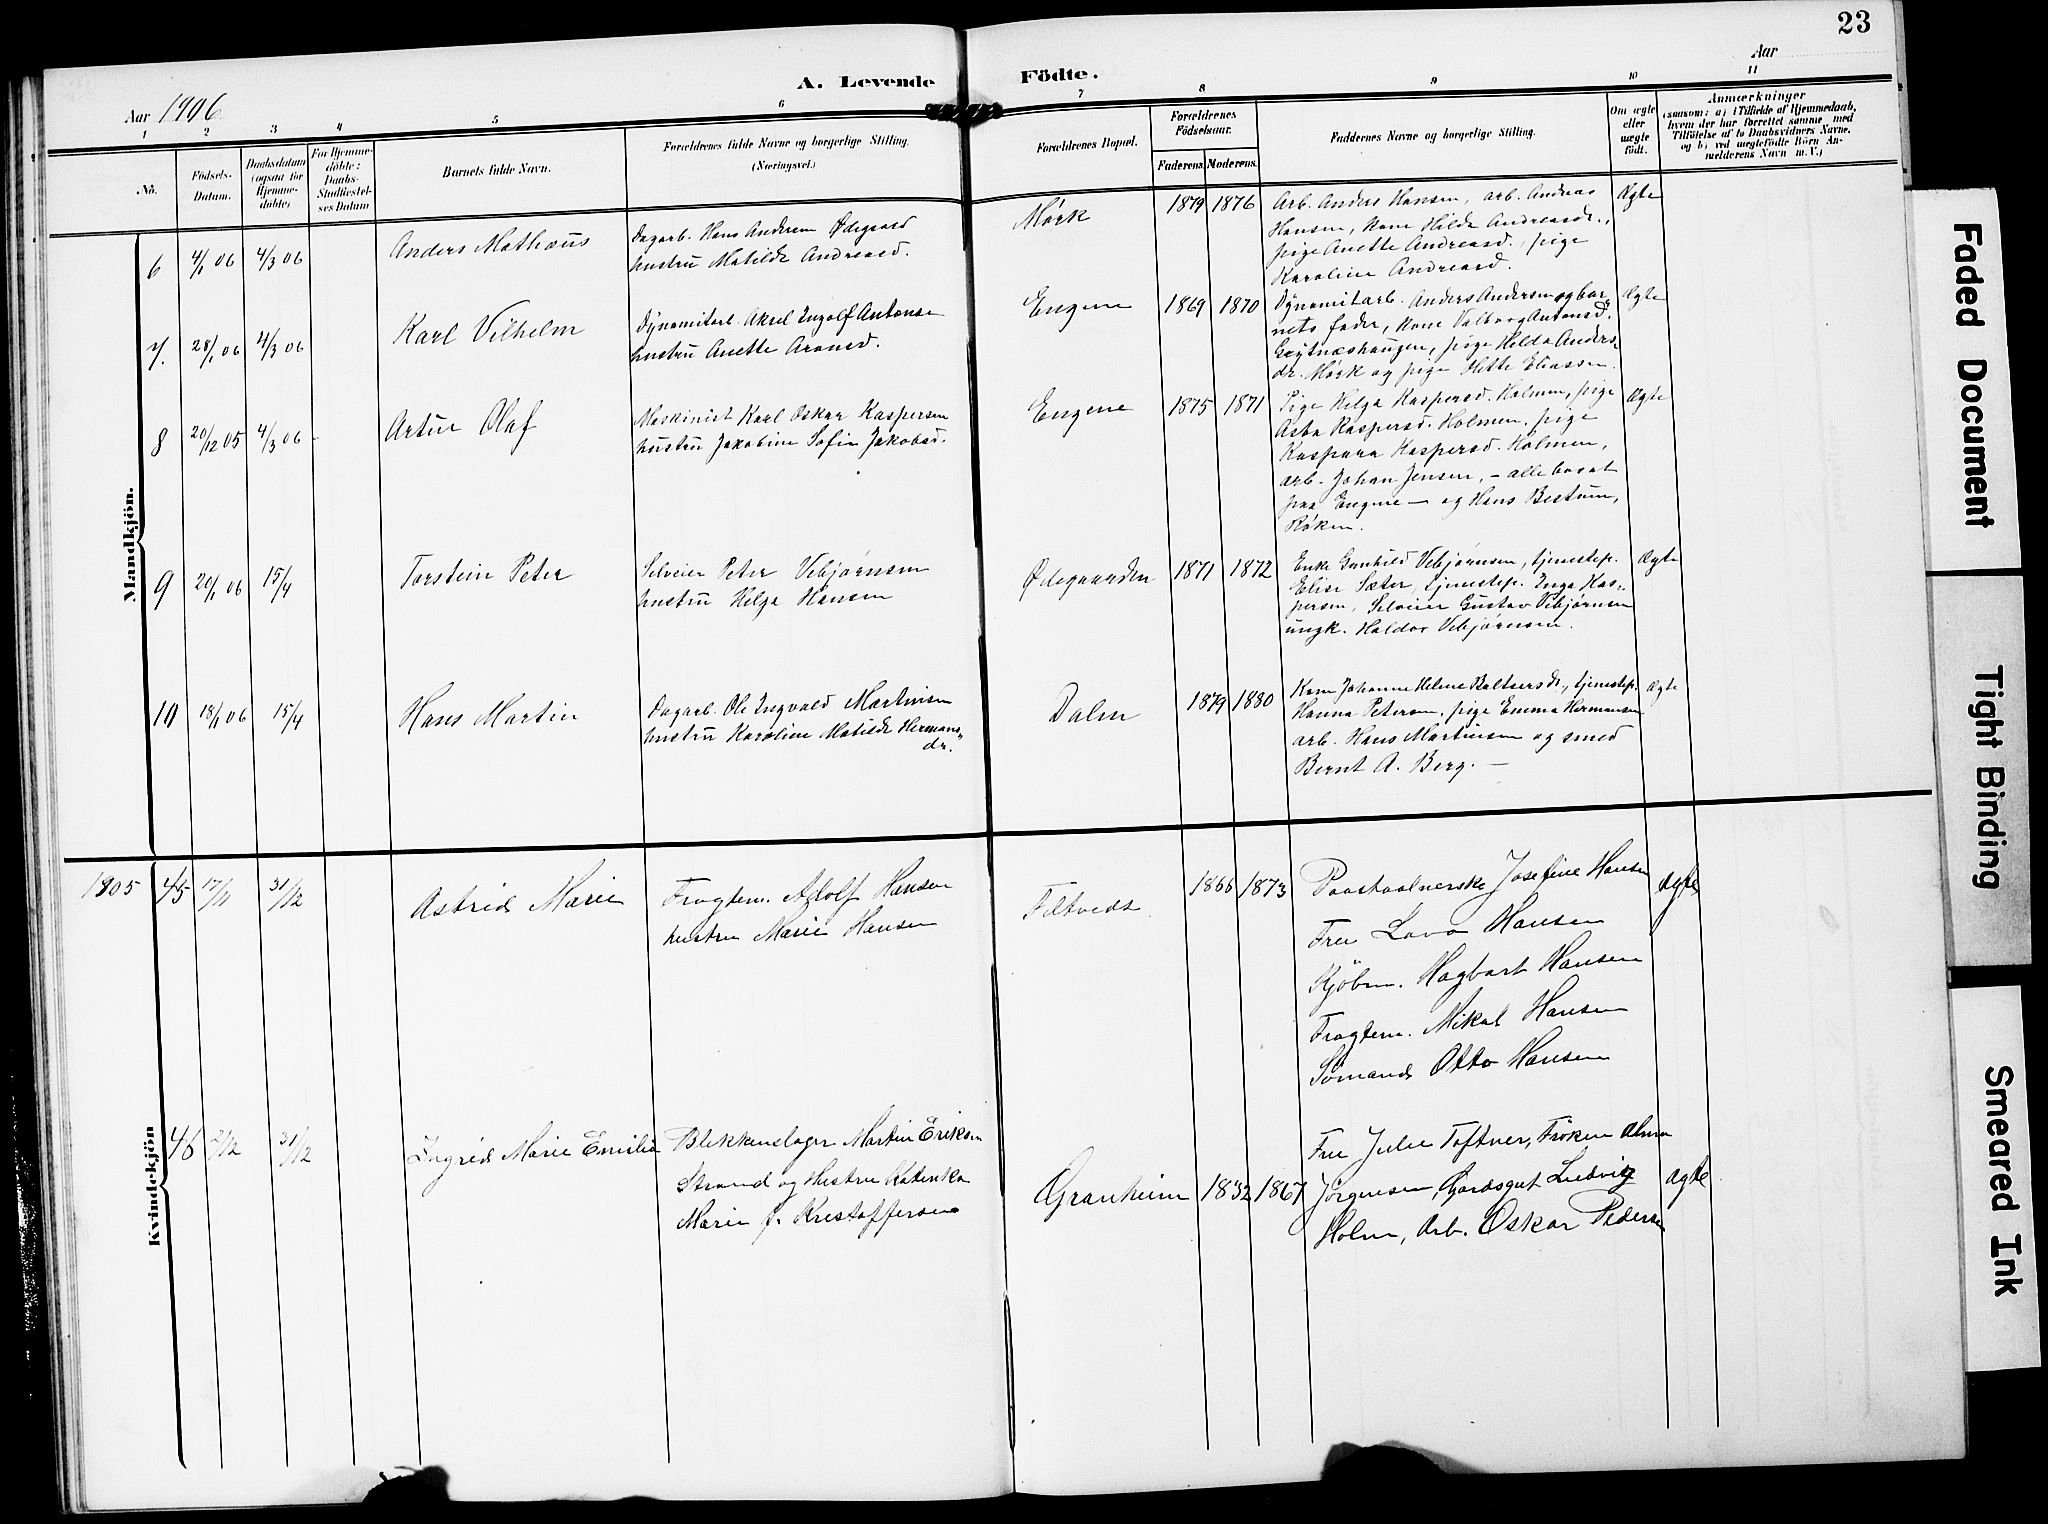 23
A. Levende Födte.
Aar 1906
Aar
1 2 3 4 5 6 7 8 9 10 11
No.
Födsels-
Datum.
Daabsdatum
(ogsaa for
Hjemme-
döbte)
For Hjemme-
döbte:
Daabs-
Stadfæstel-
ses Datum
Barnets fulde Navn.
Forældrenes fulde Navne og borgerlige Stilling.
(Næringsvei.)
Forældrenes Bopæl.
Forældrenes
Födselsaar.
Faderens. Moderens.
Faddernes Navne og borgerlige Stilling.
Om ægte
eller
uægte
født.
Anmærkninger
(saasom: a) i Tilfælde af Hjemmedaab,
hvem der har forrettet samme med
Tilföielse af to Daabsvidners Navne.
og b) ved uægtefödte Börn An-
melderens Navn m. V.)
Mandkjön.
6 4/1 06 4/3 06
Anders Mathæus
Dagarb. Hans Andersen Ødegaard
hustru Matilde Andreasd.
Mørk
1879 1876
Arb. Anders Hansen, arb. Andreas
Hansen, Kone Hilde Andreasdr.,
pige Anette Andreasd., pige
Karoline Andreasd.
Ægte
7. 28/1 06 4/3 06
Karl Vilhelm
Dynamitarb. Aksel Ingolf Antonse
hustru Anette Aronsd.
Engene
1869 1870
Dynamitarb. Anders Andersen og bar-
nets fader, Kone Valborg Antonsd.
pige Hilda Anders-
dr. Mørk og pige Mette Eliassen.
Ægte
8 20/12 05 4/3 06 -
Artur Olaf
Maskinist Karl Oskar Kaspersen
hustru Jakobine Sofie Jakobsd.
Engene
1875 1871
Pige Helga Kaspersd. Holmen, pige
Asta Kaspersd. Holmen, pige
Kaspara Kaspersd. Holmen,
arb. Johan Jensen, - alle bosat
paa Engene - og Hans Bestum,
Røken.
Ægte
9 20/1 06 15/4
Torstein Peter
Selveier Peter Vebjørnsen
hustru Helga Hansen
Ødegaarden
1871 1872
Enke Gunhild Vebjørnsen, tjenestep.
Elise Sæter, tjenestep. Inga Kas-
persen, Selveier Gustav Vebjørnsen
ungk. Haldor Vebjørnsen.
Ægte
10 18/1 06 15/4
Hans Martin
Dagarb. Ole Ingvald Martinsen
hustru Karoline Matilde Hermans-
dr.
Dalen
1879 1880
Kone Johanne Helene Baltsersdr., tjenestep.
Hanna Petersen, pige Emma Hermansen
arb. Hans Martinsen og smed
Bernt A. Berg. -
Ægte
Kvindekjön
1905 45 17/11 31/12
Astrid Marie
Fragtem. Adolf Hansen
hustru Marie Hansen
Filtvedt
1866 1873
Josefine Hansen
Fru Lava Hansen
Kjöbm. Hagbart Hansen
Fragtem. Mikal Hansen
Sømand Otto Hansen
ægte
46 2/12 31/12
Ingrid Marie Emilie
Blikkenslager Martin Eriksen
Strand og Hustru Katinka
Marie f. Kristoffersen
Granheim
1832 1867
Fru Julie Toftner, Frøken Alma
Jørgensen, Gardsgut Ludvig
Holm, Arb. Oskar Pedersen
ægte
Faded Document
Tight Binding
Smeared Ink